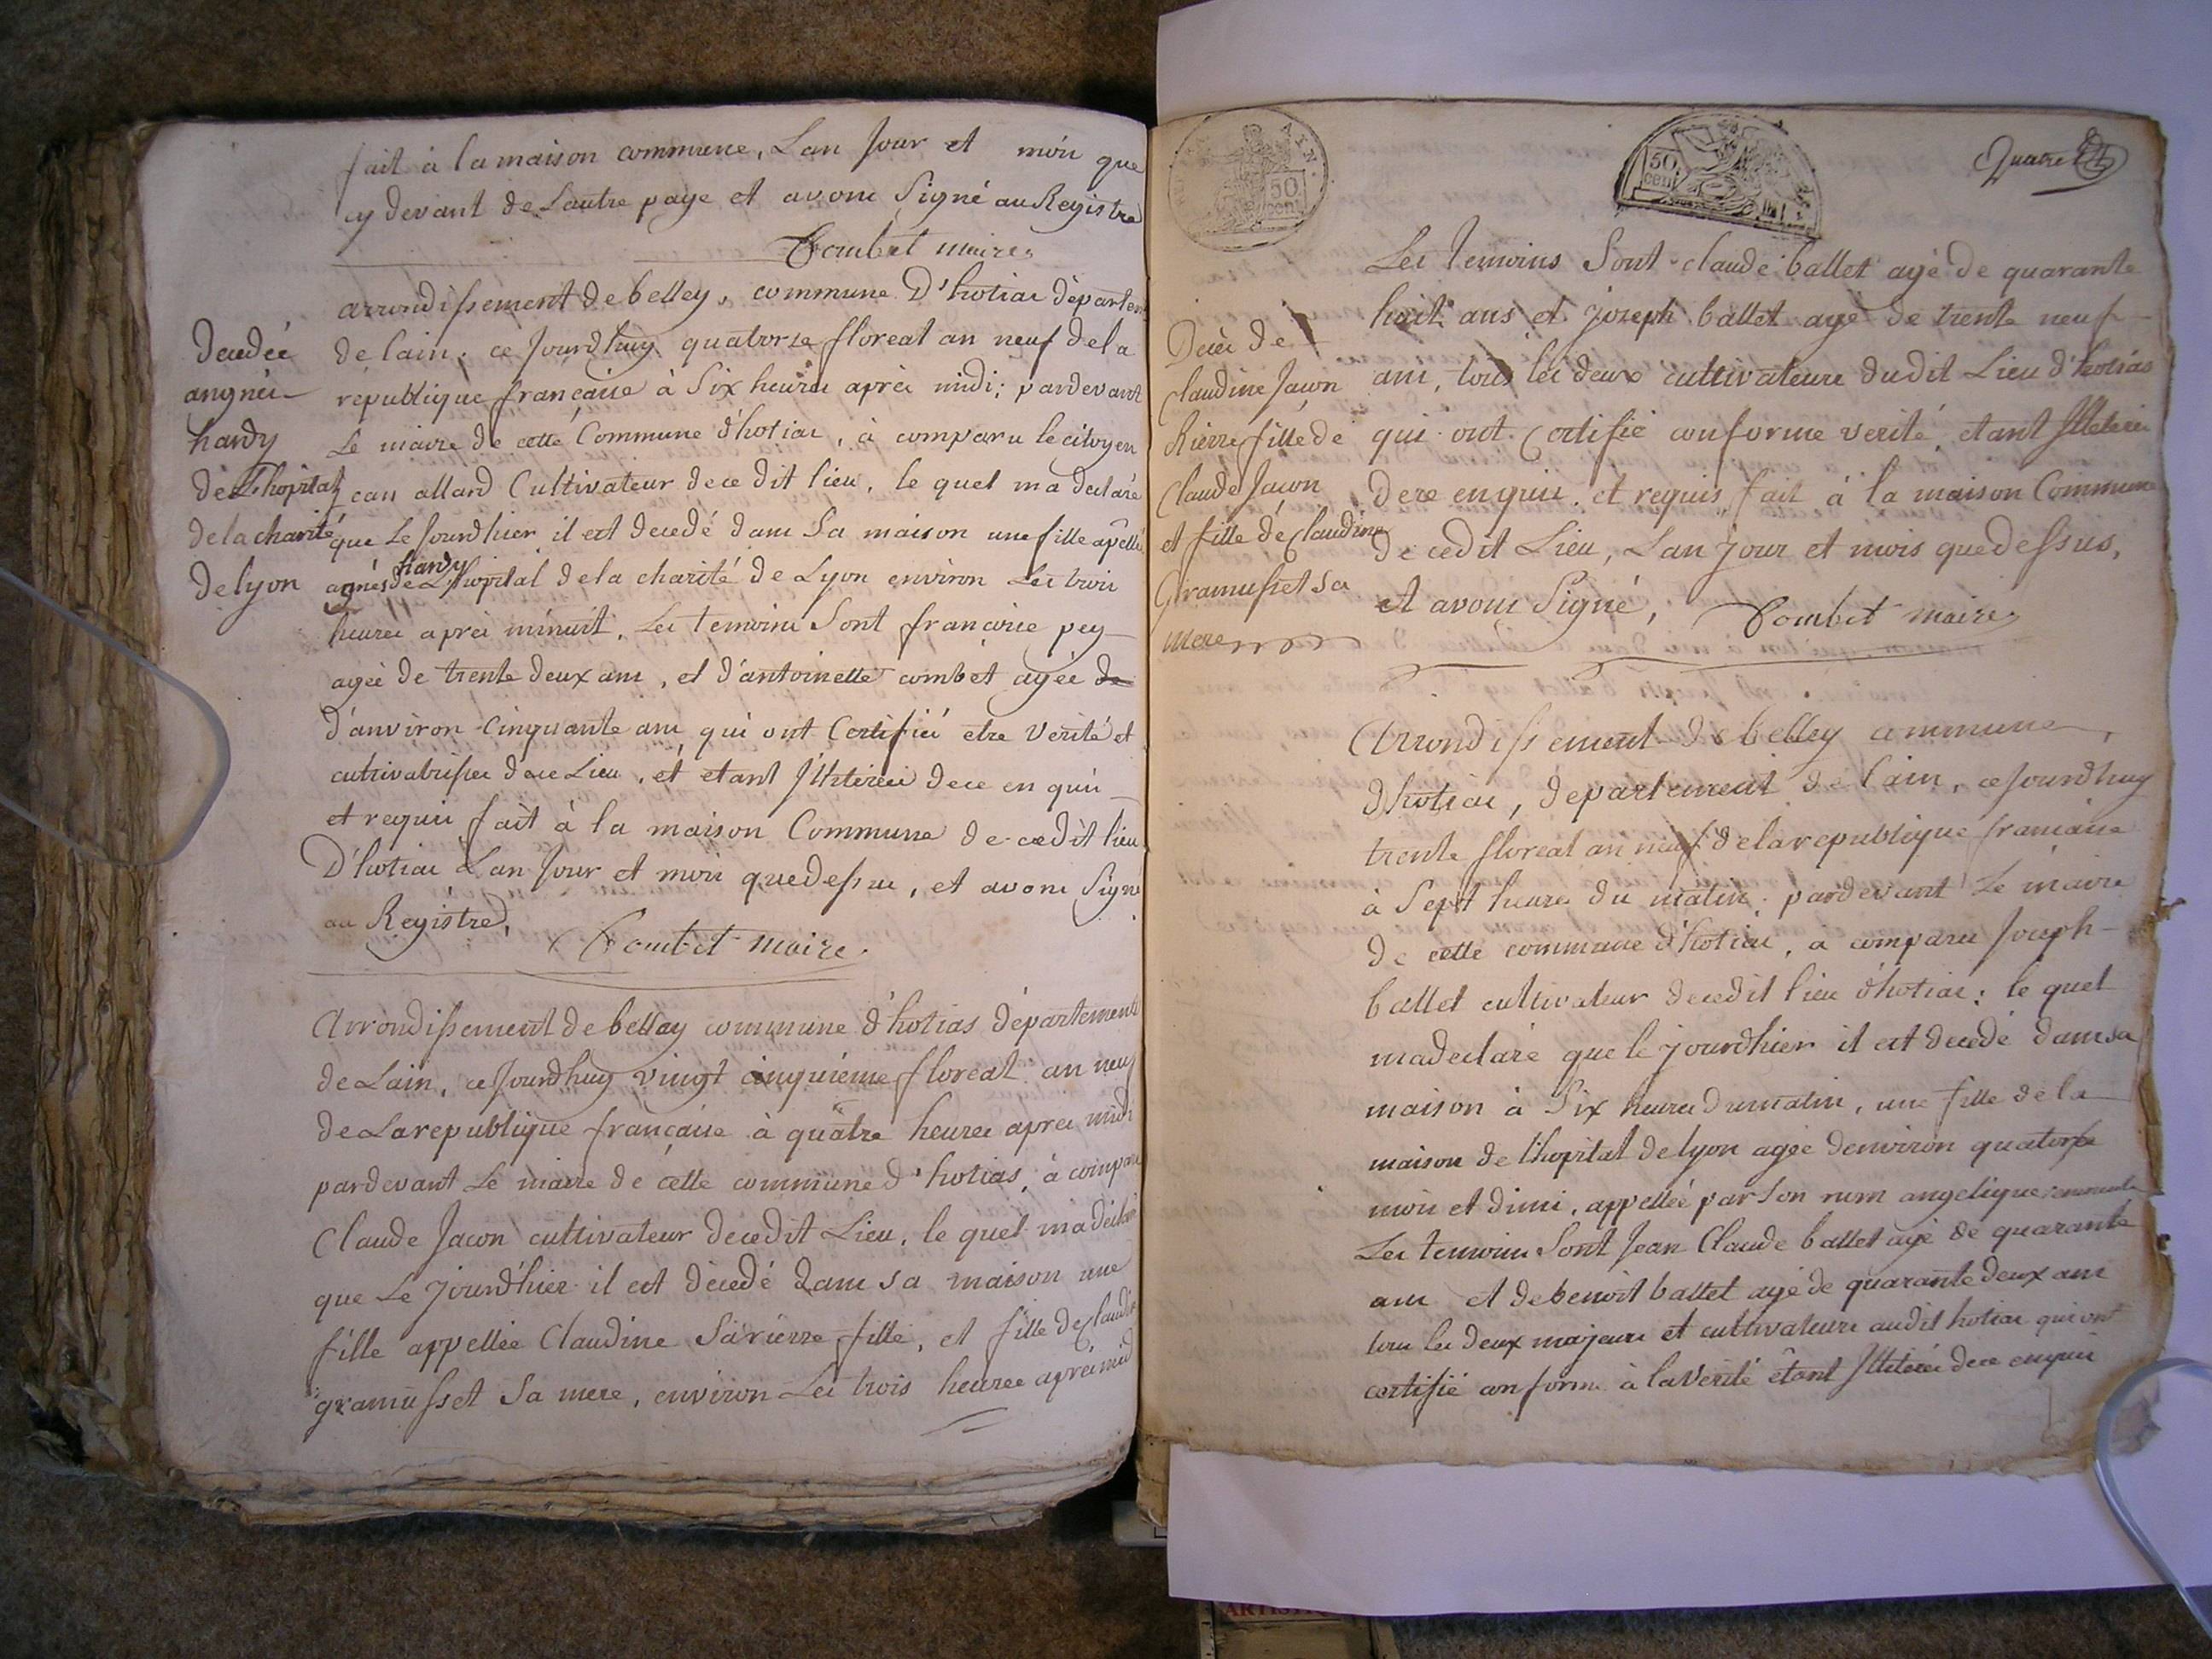 fait à la maison commune, Lan Jour et mois que
cy devant de Lautre page et avons Signé au Registre
Combet maire.
arrondissement de belley, commune D'hotias départem
de lain, ce Jourdhuy quatorze floreal an neuf dela
republique française à Six heures après midi; pardevant
Le maire de cette Commune d'hotias, à comparu le citoyen
Jean allard Cultivateur dece dit lieu, le quel ma déclaré
que Le Jourdhier il est decedé dans Sa maison une fille apellé
hardy
agnès de L'hopital dela charité de Lyon environ Les trois
heures après minuit, Les temoins Sont françoise pey
agée de trente deux ans, et d'antoinette combet agée de
d'anviron Cinquante ans qui ont Certifié etre Verité et
cultivatrisses dece Lieu, et etant Illiterés dece en quis
et requis fait à la maison Commune de cedit lieu
D'hotias Lan Jour et mois quedessus, et avons Signé
au Registre,
Combet maire.
Decedée
angnés
hardy
de L'hopital
de la charité
de lyon
Arrondissement de belley commune d'hotias département
de Lain, ce Jourdhuy vingt cinquième floreal an neuf
de La republique française à quatre heures après midi
pardevant Le maire de cette commune d'hotias, à compau
Claude Jacon cultivateur decedit Lieu, le quel ma déclaré
que Le Jourd'hier il est décedé dans sa maison une
fille appellée Claudine Sarierre fille, et fille de Claudine
gramusset Sa mere, environ Les trois heures après mid
Quatre
50
cent
50
cent
Les temoins Sont claude ballet agé de quarante
huit ans et Joseph ballet agé de trente neuf
ans, tous les deux cultivateurs dudit Lieu d'hotias
qui ont Certifié conforme verité, etant Illeterés
dece enquis et requis, fait à la maison Commune
de cedit Lieu, Lan Jour et mois quedessus,
et avons Signé, Combet maire
Décès de
claudine Jacon
Rierre fille de
Claude Jacon
et fille de Claudine
Gramusset sa
mere
Arrondissement de belley commune
d'hotias, departement de lain, ce Jourdhuy
trente floreal an neuf de la republique francaise
à Sept heures du matin; pardevant Le maire
de cette commune d'hotias, à comparu Joseph
ballet cultivateur decedit lieu d'hotias; le quel
madeclaré que le jourd'hier il est decedé dans sa
maison à Six heures dumatin, une fille de la
maison de l'hopital de lyon agée denviron quatorse
mois et dimi, appellée par Son nom angelique
Les temoins Sont Jean Claude ballet agé de quarante
ans et de benoit ballet agé de quarante deux ans
tous les deux majeurs et cultivateurs audit hotias qui ont
certifié conforme à la Verité étant Illiterés dece enquis